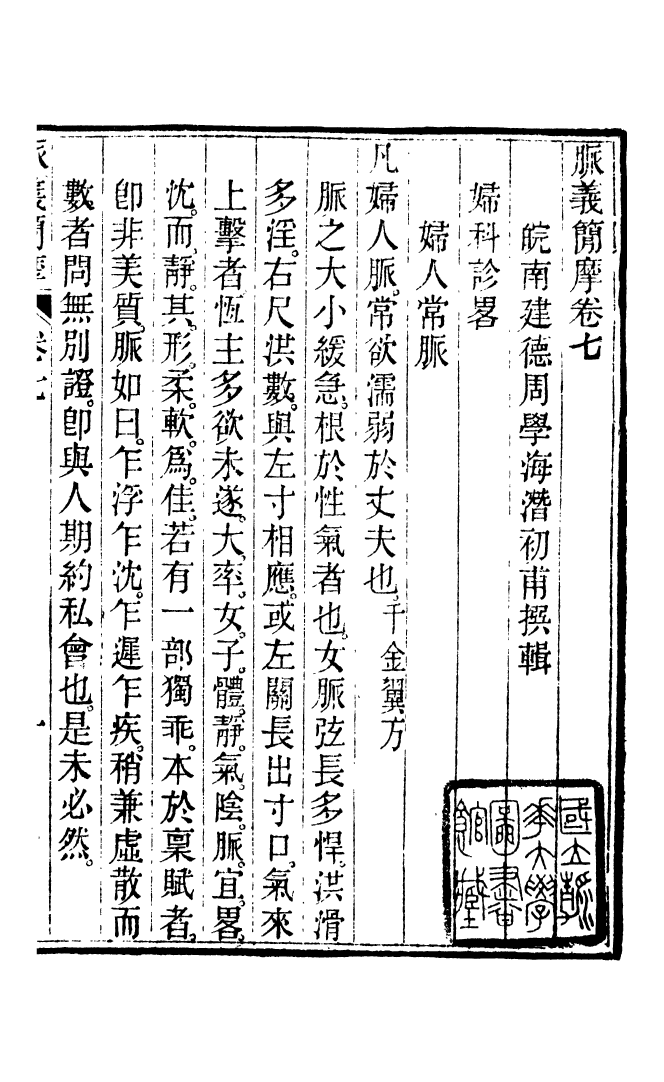 脈義簡摩卷七
皖南建德周學海潛初甫撰輯
婦科診畧
婦人常脈
凡婦人脈。常欲濡弱於丈夫也。千金翼方
脈之大小緩急。根於性氣者也。女脈弦長多悍。洪滑
多淫。右尺洪數。與左寸相應。或左關長出寸口。氣來
上擊者。恆主多欲未遂。大率。女子。體靜。氣陰。脈宜。畧
沈。而靜。其形。柔軟。爲佳。若有一部獨乖。本於稟賦者。
卽非美質。脈如曰。乍浮乍沈。乍遲乍疾。稍兼虛散而
數者。問無別證。卽與人期約私會也。是未必然。
脈義簡摩 卷七 一
國立清華大學圖書館藏